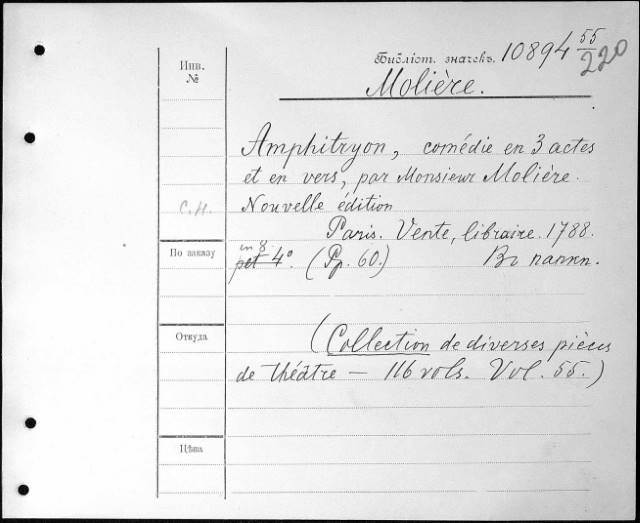 Библіот. значекъ. 10894 55/220
Инв. №
Molière.
Amphitryon, comédie en 3 actes
et en vers, par Monsieur Molière.
С.Н. Nouvelle édition
Paris. Vente, libraire. 1788.
По заказу
in 8.
pet 4°. (Pp. 60.) Въ папкѣ.
Откуда
(Collection de diverses pièces
de théâtre — 116 vols. Vol. 55.)
Цѣна